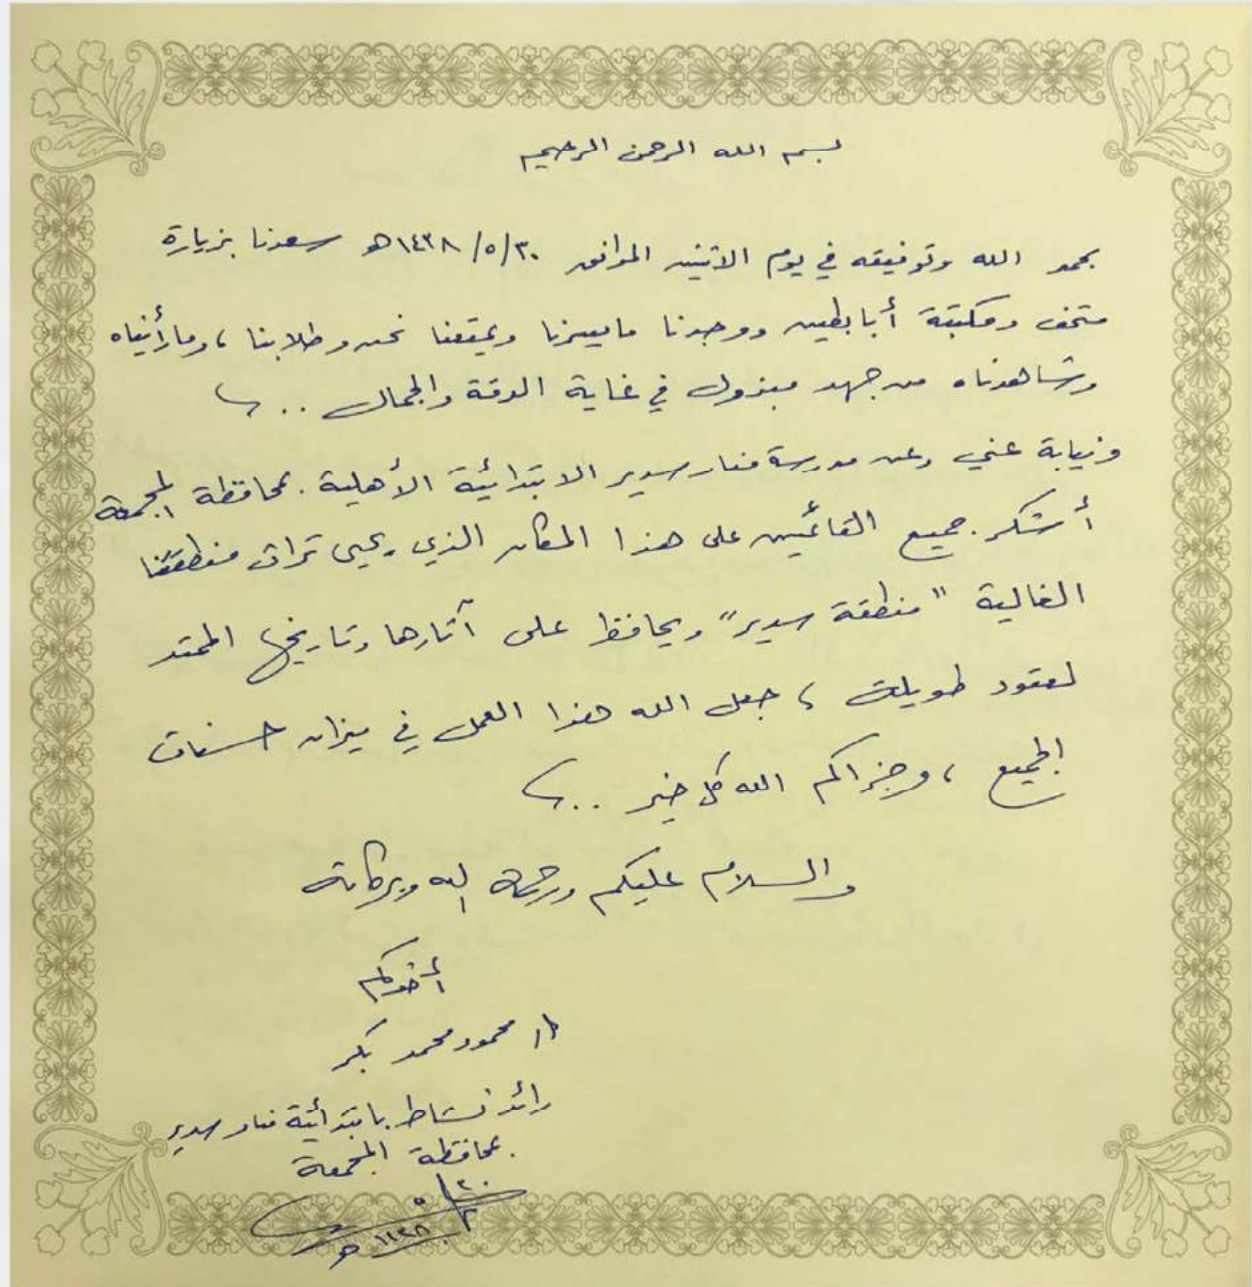 بسم الله الرحمن الرحيم
بحمد الله وتوفيقه في يوم الاثنين الموافق ٣٠/٥/١٤٣٨هـ سعدنا بزيارة
متحف ومكتبة أبابطين ووجدنا مايسرنا ويمتعنا نحن وطلابنا ، ومارأيناه
وشاهدناه من جهد مبذول في غاية الدقة والجمال ..
ونيابة عني وعن مدرسة منار سدير الابتدائية الأهلية بمحافظة المجمعة
أشكر جميع القائمين على هذا المكان الذي يحيي تراث منطقتنا
الغالية "منطقة سدير" ويحافظ على آثارها وتاريخها الممتد
لعقود طويلة ، جعل الله هذا العمل في ميزان حسنات
الجميع ، وجزاكم الله كل خير ..
والسلام عليكم ورحمة الله وبركاته
أخوكم
أ/ محمود محمد بكر
رائد نشاط بابتدائية منار سدير
بمحافظة المجمعة
٣٠/٥
١٤٣٨هـ